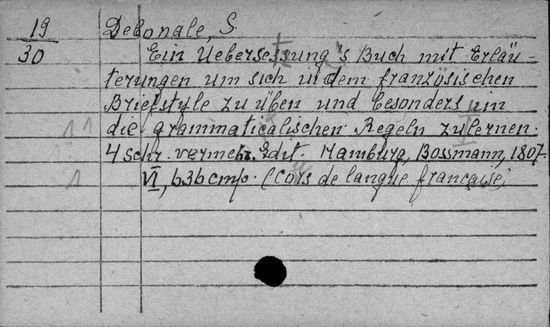 19 Debonale, S.
30 Ein Uebersetzung's Buch mit Erläu-
terungen um sich in dem französischen
Briefstyle zu üben und besonders um
die grammaticalischen Regeln zu lernen.
4 sehr vermehr. Edit. Hamburg, Bossmann, 1807.
VI, 636 cmp. (Cours de langue française)